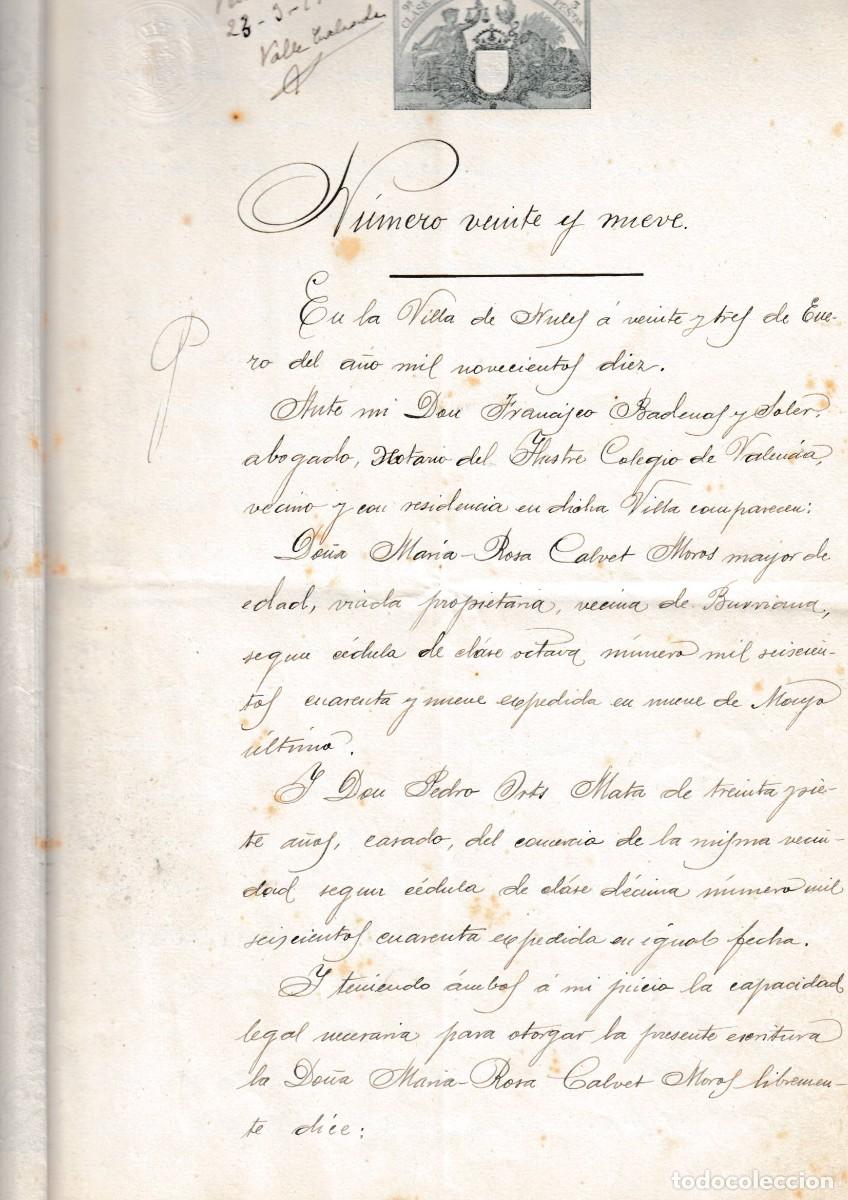 23-3-1
Valle
9ª CLASE
3 PESETAS
Número veinte y nueve.
En la Villa de Nules á veinte y tres de Ene-
ro del año mil novecientos diez.
Ante mi Don Francisco Badenes y Soler,
abogado, Notario del Ilustre Colegio de Valencia,
vecino y con residencia en dicha Villa comparecen:
Doña María-Rosa Calvet Moros mayor de
edad, viuda propietaria, vecina de Burriana,
segun cédula de cláse octava número mil seiscien-
tos cuarenta y nueve expedida en nueve de Mayo
último.
Y Don Pedro Orts Mata de treinta y sie-
te años, casado, del comercio de la misma vecin-
dad segun cédula de cláse décima número mil
seiscientos cuarenta expedida en igual fecha.
Y teniendo ámbos á mi juicio la capacidad
legal necesaria para otorgar la presente escritura
la Doña Maria-Rosa Calvet Moros libremen-
te dice:
todocoleccion